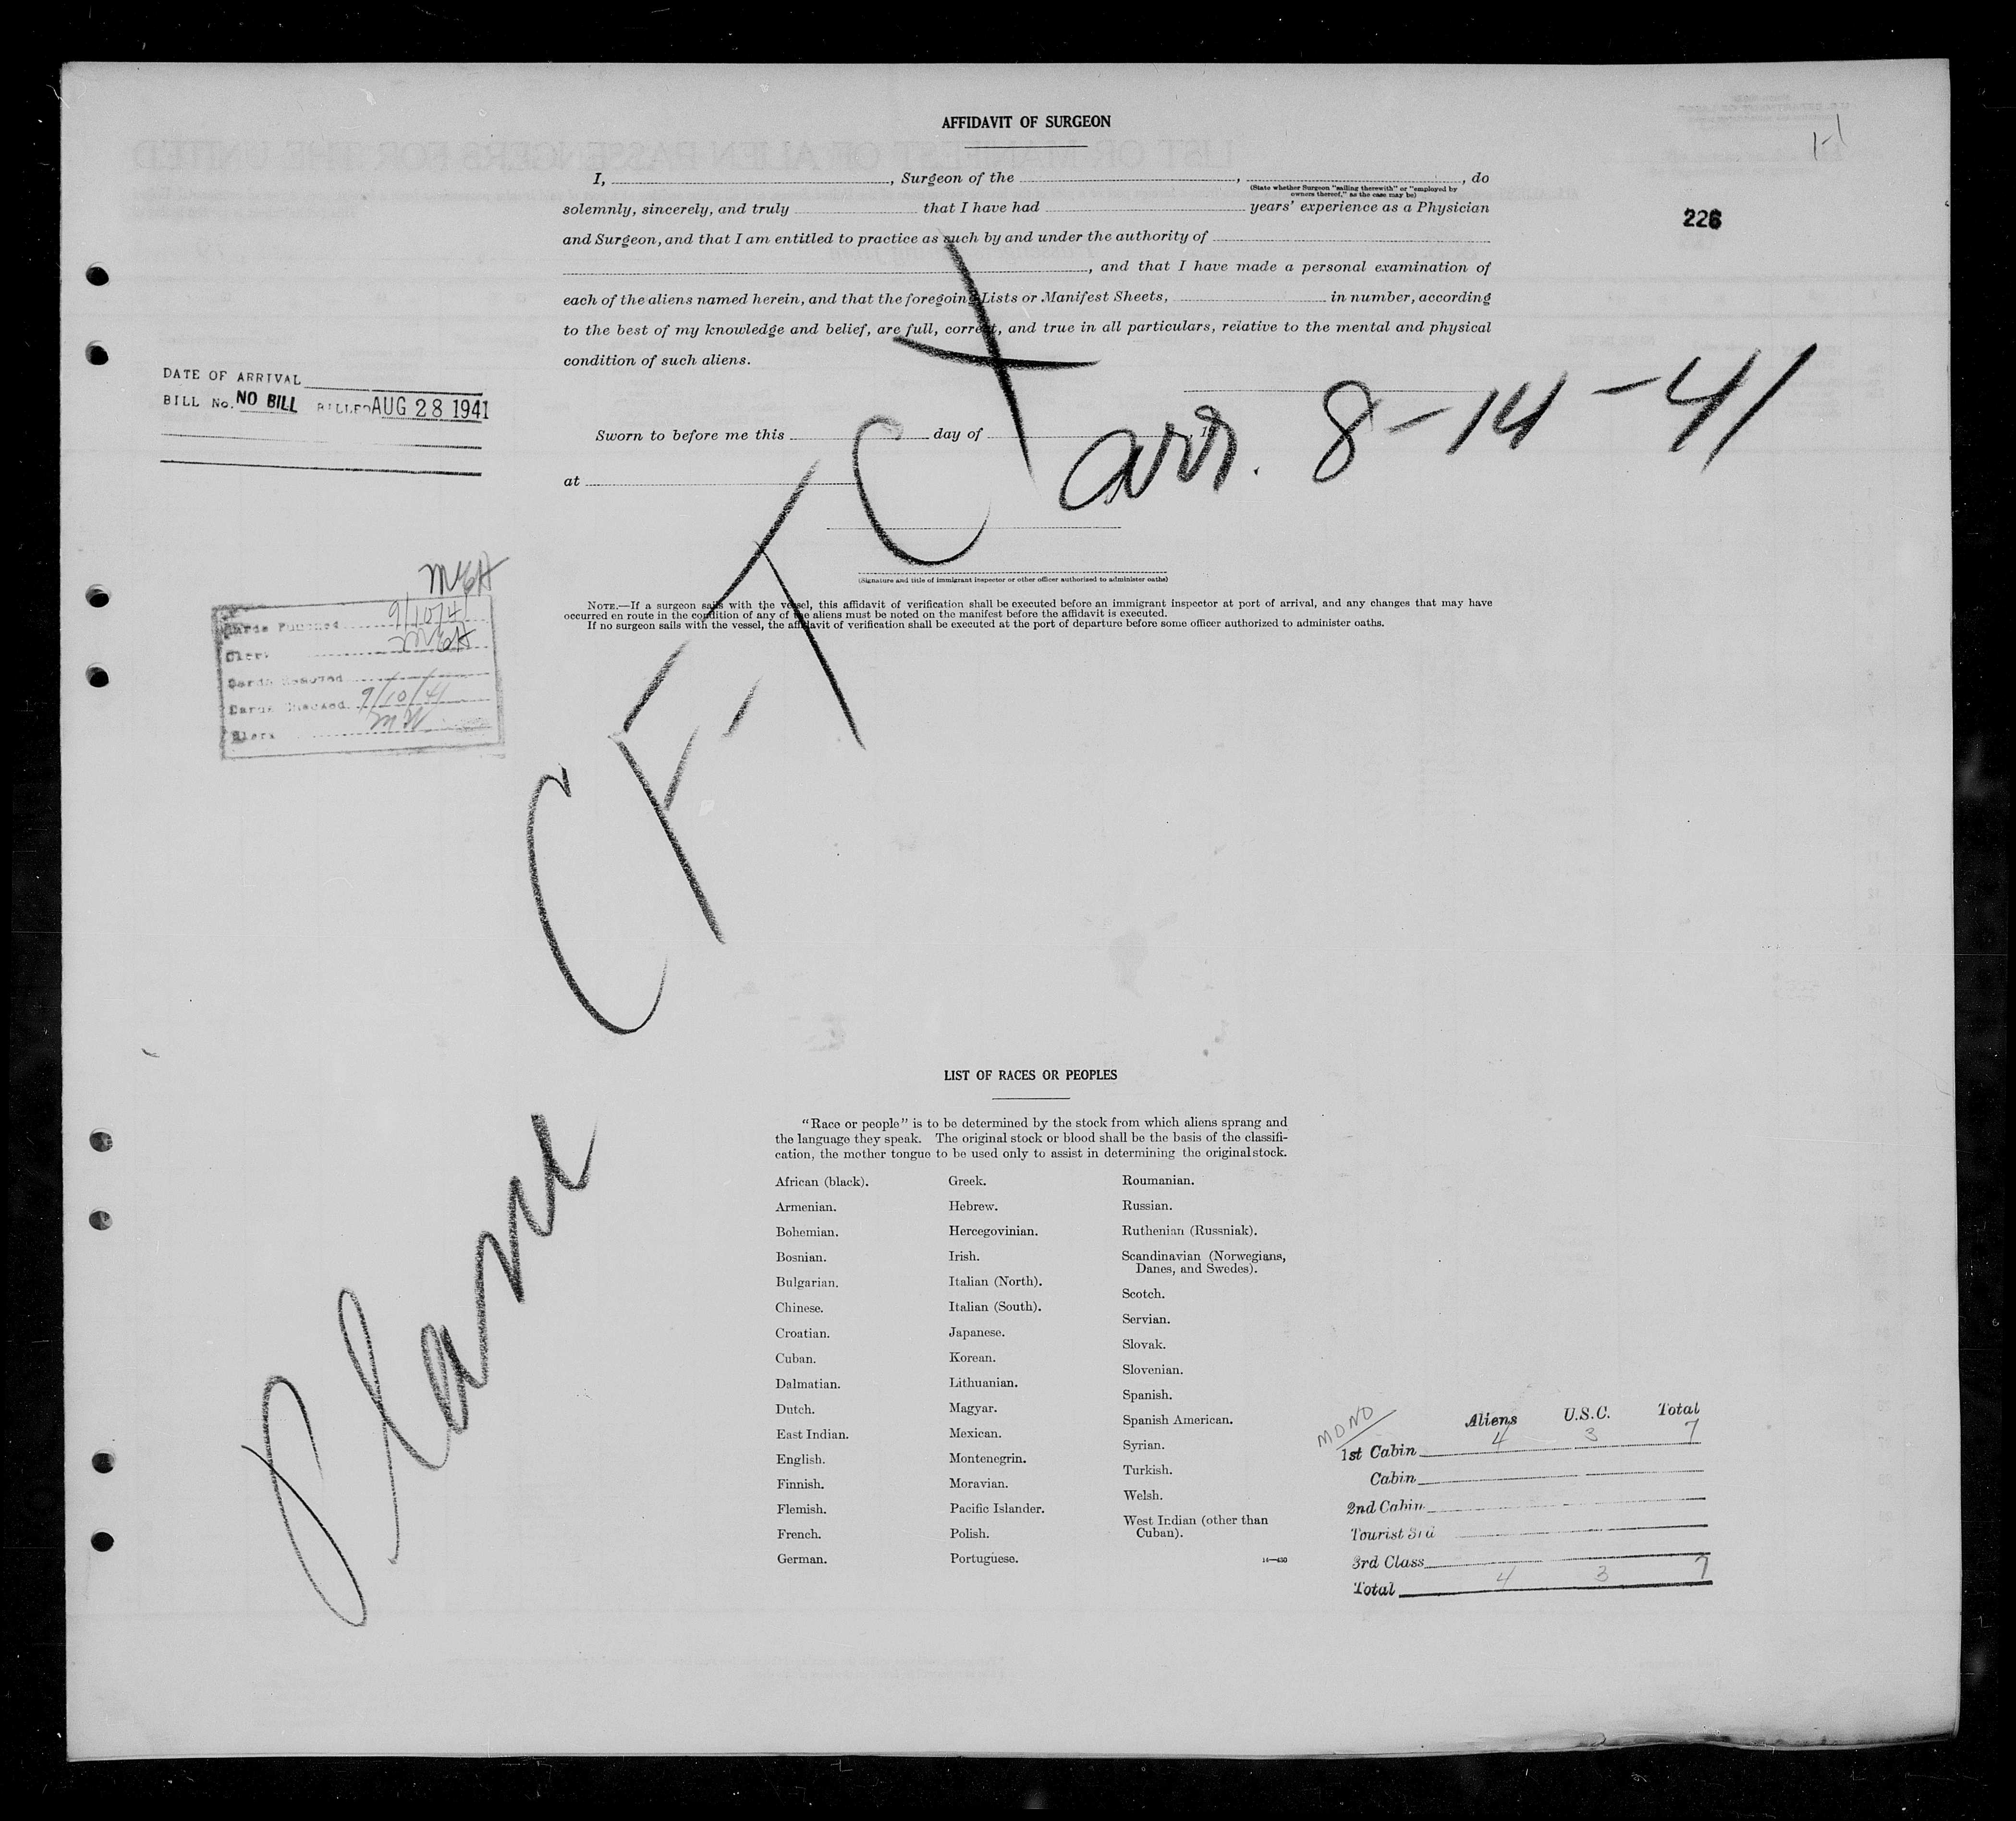 AFFIDAVIT OF SURGEON
1-1
226
I, , Surgeon of the , , do
(State whether Surgeon "sailing therewith" or "employed by
owners thereof," as the case may be)
solemnly, sincerely, and truly that I have had years' experience as a Physician
and Surgeon, and that I am entitled to practice as such by and under the authority of
, and that I have made a personal examination of
each of the aliens named herein, and that the foregoing Lists or Manifest Sheets, in number, according
to the best of my knowledge and belief, are full, correct, and true in all particulars, relative to the mental and physical
condition of such aliens.
DATE OF ARRIVAL
BILL No. NO BILL BILLED AUG 28 1941
Sworn to before me this day of , 19
at
arr. 8-14-41
Plane CF-TCX
(Signature and title of immigrant inspector or other officer authorized to administer oaths)
NOTE.—If a surgeon sails with the vessel, this affidavit of verification shall be executed before an immigrant inspector at port of arrival, and any changes that may have
occurred en route in the condition of any of the aliens must be noted on the manifest before the affidavit is executed.
If no surgeon sails with the vessel, the affidavit of verification shall be executed at the port of departure before some officer authorized to administer oaths.
Cards Punched 9/10/41
Clerk
Cards
Cards Checked 9/10/41
Clerk MW
LIST OF RACES OR PEOPLES
"Race or people" is to be determined by the stock from which aliens sprang and
the language they speak. The original stock or blood shall be the basis of the classifi-
cation, the mother tongue to be used only to assist in determining the original stock.
African (black).
Armenian.
Bohemian.
Bosnian.
Bulgarian.
Chinese.
Croatian.
Cuban.
Dalmatian.
Dutch.
East Indian.
English.
Finnish.
Flemish.
French.
German.
Greek.
Hebrew.
Hercegovinian.
Irish.
Italian (North).
Italian (South).
Japanese.
Korean.
Lithuanian.
Magyar.
Mexican.
Montenegrin.
Moravian.
Pacific Islander.
Polish.
Portuguese.
Roumanian.
Russian.
Ruthenian (Russniak).
Scandinavian (Norwegians,
Danes, and Swedes).
Scotch.
Servian.
Slovak.
Slovenian.
Spanish.
Spanish American.
Syrian.
Turkish.
Welsh.
West Indian (other than
Cuban).
14—430
MONO
Aliens U.S.C. Total
1st Cabin 4 3 7
Cabin
2nd Cabin
Tourist 3rd
3rd Class
Total 4 3 7